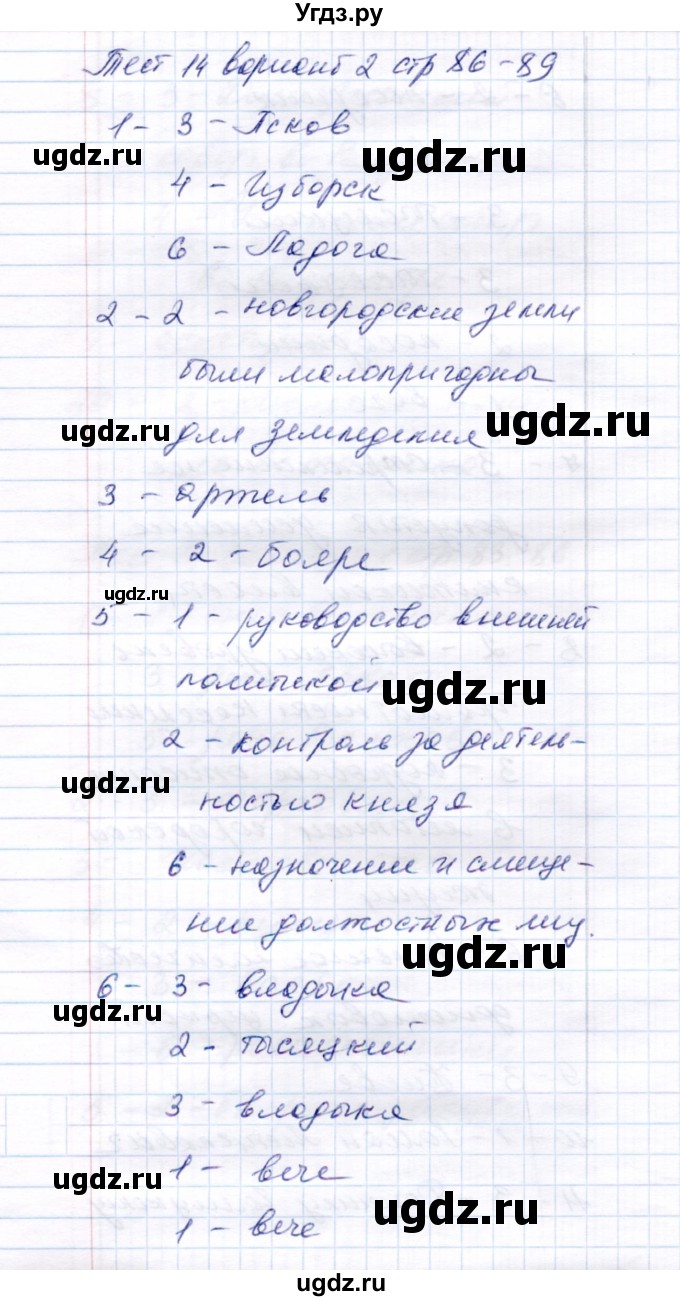 Угдз.ру
Тест 14 вариант 2 стр 86-89
1 - 3 - Псков
ugdz.ru ugdz.ru
4 - Изборск
6 - Ладога
2 - 2 - новгородские земли
были малопригодны
ugdz.ru для земледелия ugdz.ru
3 - артель
4 - 2 - бояре
ugdz.ru
5 - 1 - руководство внешней
политикой ugdz.ru
2 - контроль за деятель-
ugdz.ru ностью князя
6 - назначение и смеще-
ние должостных лиц.
ugdz.ru
6 - 3 - владыка
ugdz.ru
2 - тысяцкий
3 - владыка
1 - вече
ugdz.ru
1 - вече ugdz.ru
ugdz.ru